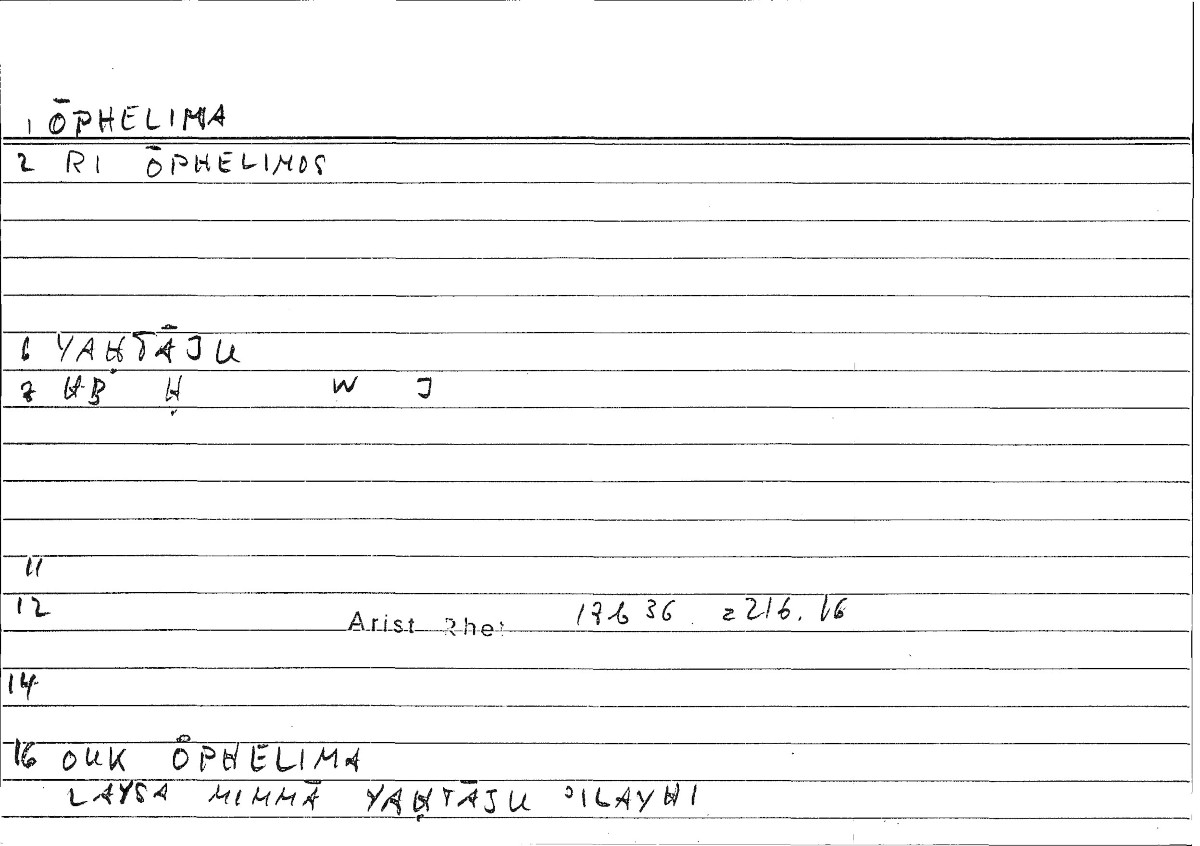 1 ŌPHELIMA
2 RI ŌPHELIMOS
6 YAḤTĀJU
7 HB Ḥ W J
11
12 Arist Rhet 17b 36. = 216. 16
14
16 OUK ŌPHELIMA
LAYSA MIMMĀ YAḤTĀJU ʾILAYHI